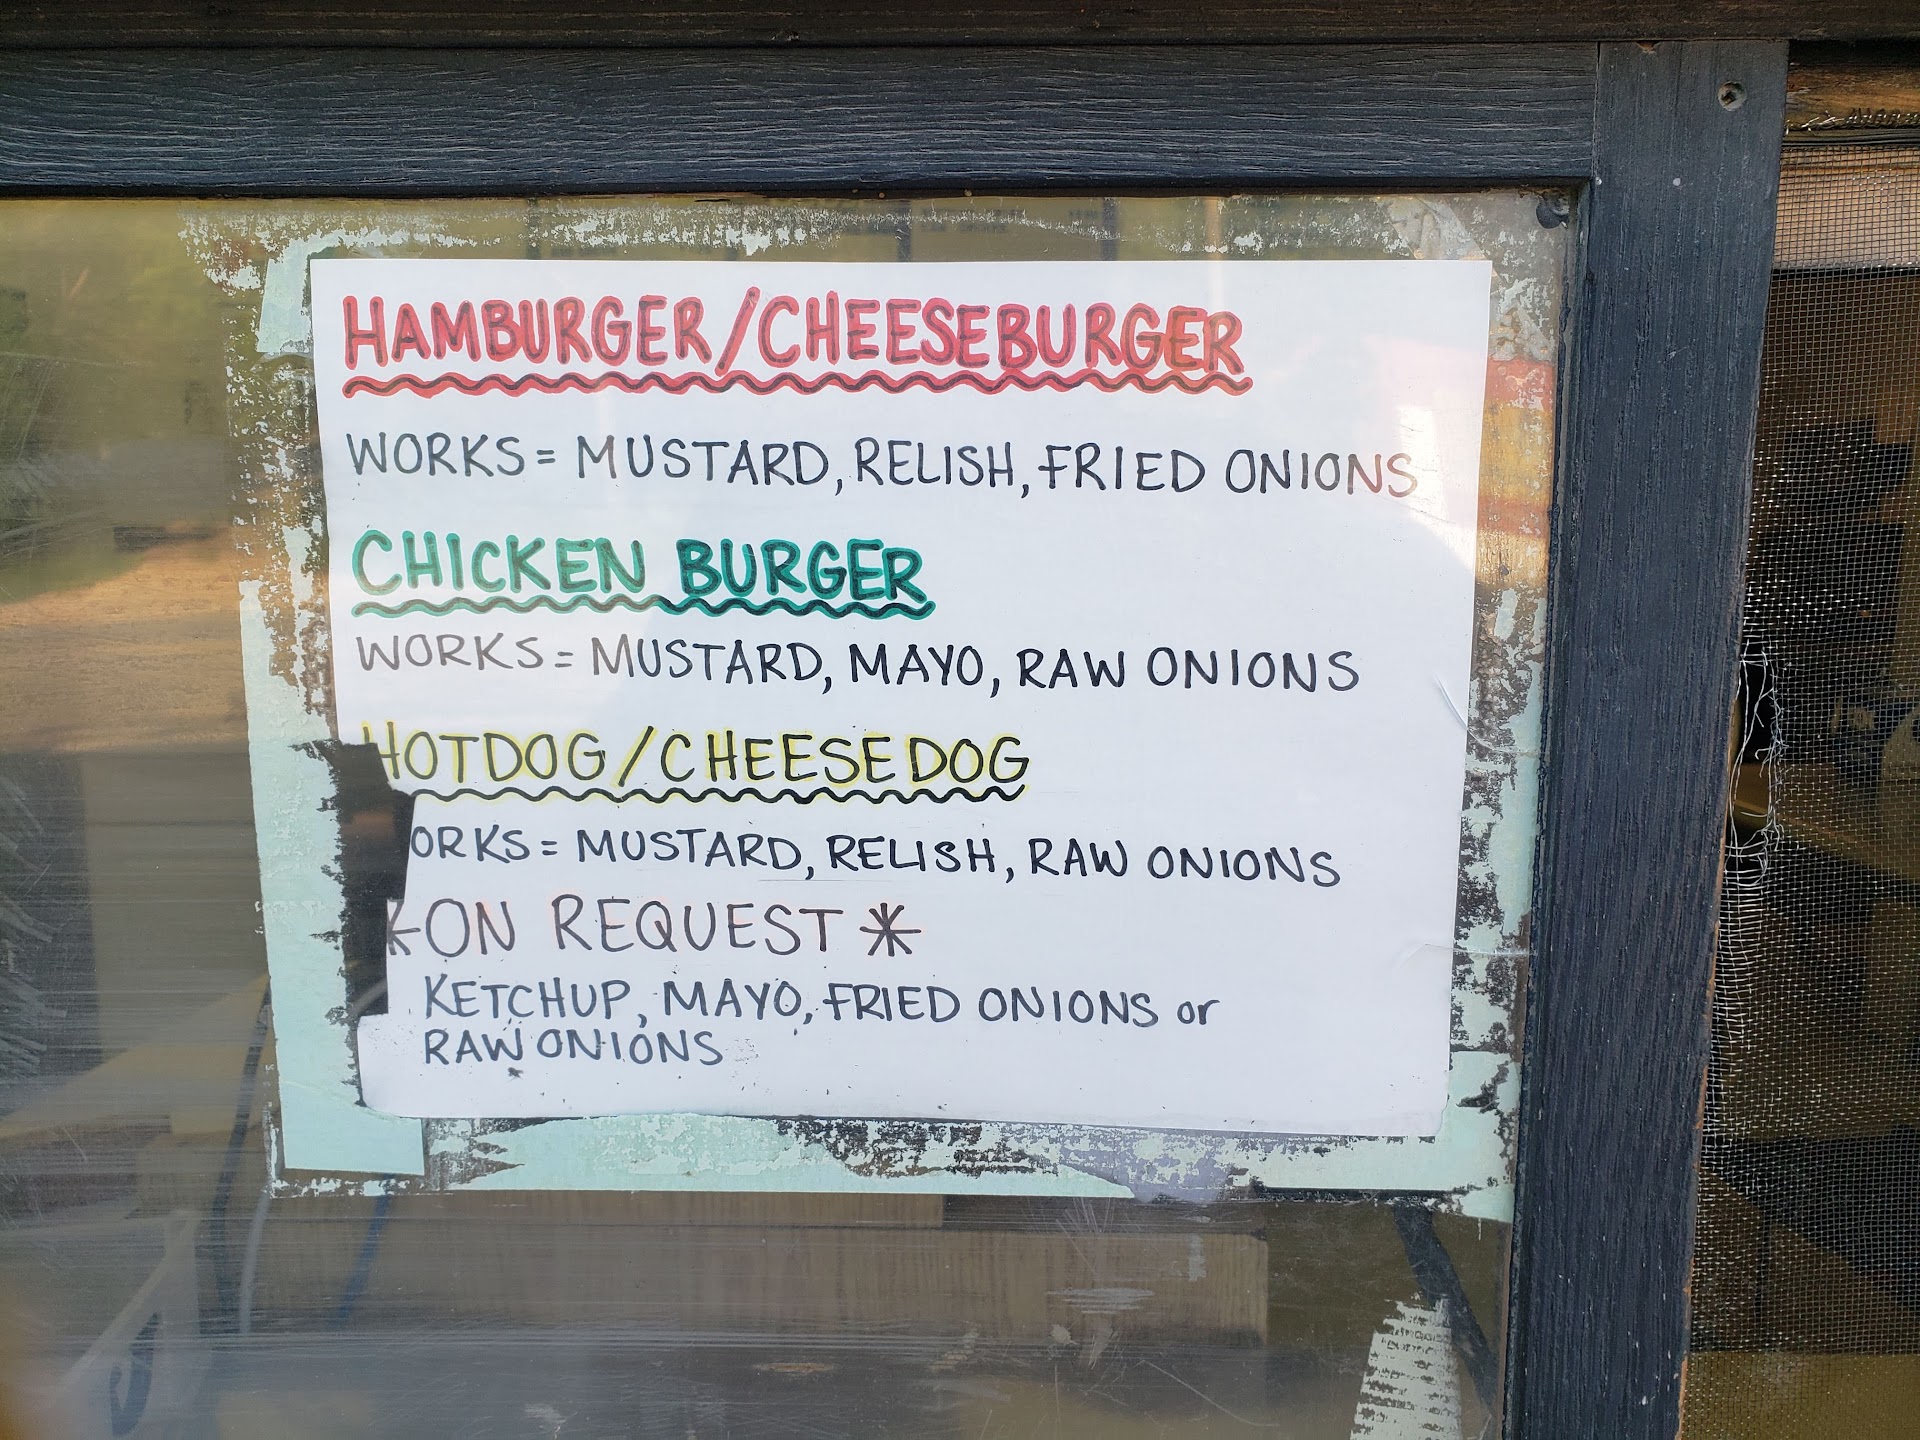 HAMBURGER/CHEESEBURGER
WORKS = MUSTARD, RELISH, FRIED ONIONS
CHICKEN BURGER
WORKS = MUSTARD, MAYO, RAW ONIONS
HOTDOG/CHEESEDOG
ORKS = MUSTARD, RELISH, RAW ONIONS
*ON REQUEST*
KETCHUP, MAYO, FRIED ONIONS or
RAW ONIONS